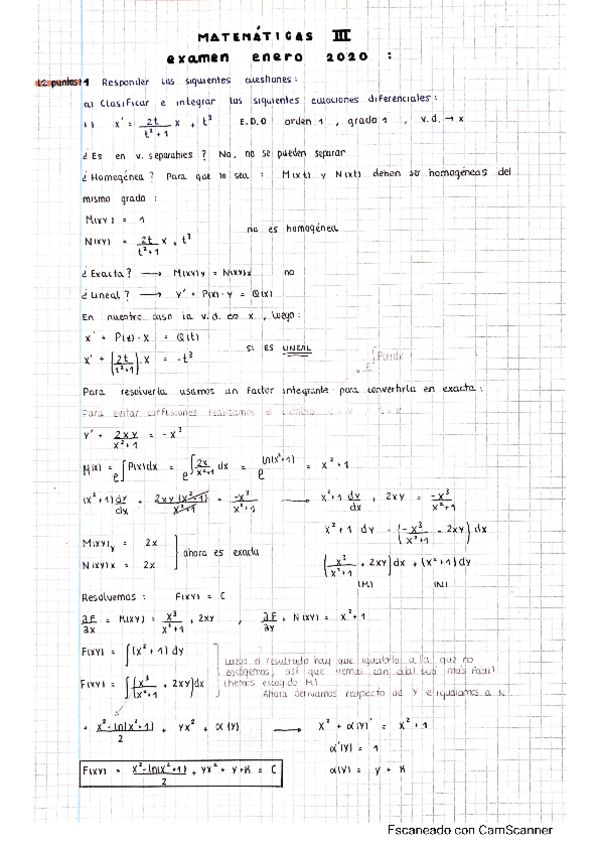 MATEMÁTICAS III
examen enero 2020 :
(2 puntos) 1 Responder las siguientes cuestiones:
a) Clasificar e integrar las siguientes ecuaciones diferenciales:
x' = 2t/(t²+1) x + t³ E.D.O orden 1 , grado 1 , v.d. → x
¿Es en v. separables? No, no se pueden separar
¿Homogénea? Para que lo sea : M(xt) y N(xt) deben ser homogéneas del
mismo grado :
M(xy) = 1
no es homogénea
N(xy) = 2t/(t²+1) x + t³
¿Exacta? → M(xy)y = N(xy)x no
¿Lineal? → y' + P(x)·y = Q(x)
En nuestro caso la v.d. es x , luego:
x' + P(t)·x = Q(t)
SI ES LINEAL
x' + (2t/(t²+1))·x = -t³
e^∫P(x)dx
Para resolverla usamos un factor integrante para convertirla en exacta:
Para evitar confusiones realizamos el cambio
y' + 2xy/(x²+1) = -x³
M(x) = e^∫P(x)dx = e^∫2x/(x²+1) dx = e^ln(x²+1) = x²+1
(x²+1)dy/dx + 2xy(x²+1)/(x²+1) = -x³/(x²+1) → x²+1 dy/dx + 2xy = -x³/(x²+1)
x²+1 dy = (-x³/(x²+1) - 2xy) dx
M(xy)y = 2x
N(xy)x = 2x
ahora es exacta
(x³/(x²+1) + 2xy)dx + (x²+1)dy
(M) (N)
Resolvemos : F(xy) = C
∂F/∂x = M(xy) = x³/(x²+1) + 2xy , ∂F/∂y = N(xy) = x²+1
F(xy) = ∫(x²+1) dy
F(xy) = ∫(x³/(x²+1) + 2xy)dx
Luego el resultado hay que igualarlo a la que no
escogemos, así que vemos con cual sea más fácil
(hemos escogido M)
Ahora derivamos respecto de y e igualamos a N
= x²-ln(x²+1)/2 + yx² + α(y) → x² + α(y)' = x²+1
α'(y) = 1
α(y) = y + K
F(xy) = x²-ln(x²+1)/2 + yx² + y+K = C
Escaneado con CamScanner